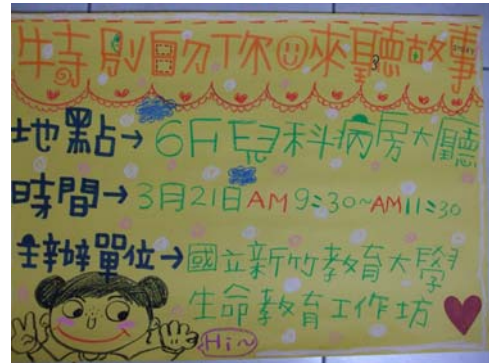 特別的你來聽故事
地點→6F兒科病房大廳
時間→3月21日AM9:30~AM11:30
主辦單位→國立新竹教育大學
生命教育工作坊
Hi~